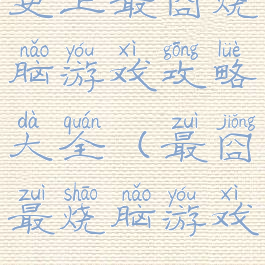 史上最囧烧
nǎo yóu xì gōng lüè
脑游戏攻略
dà quán zuì jiǒng
大全（最囧
zuì shāo nǎo yóu xì
最烧脑游戏